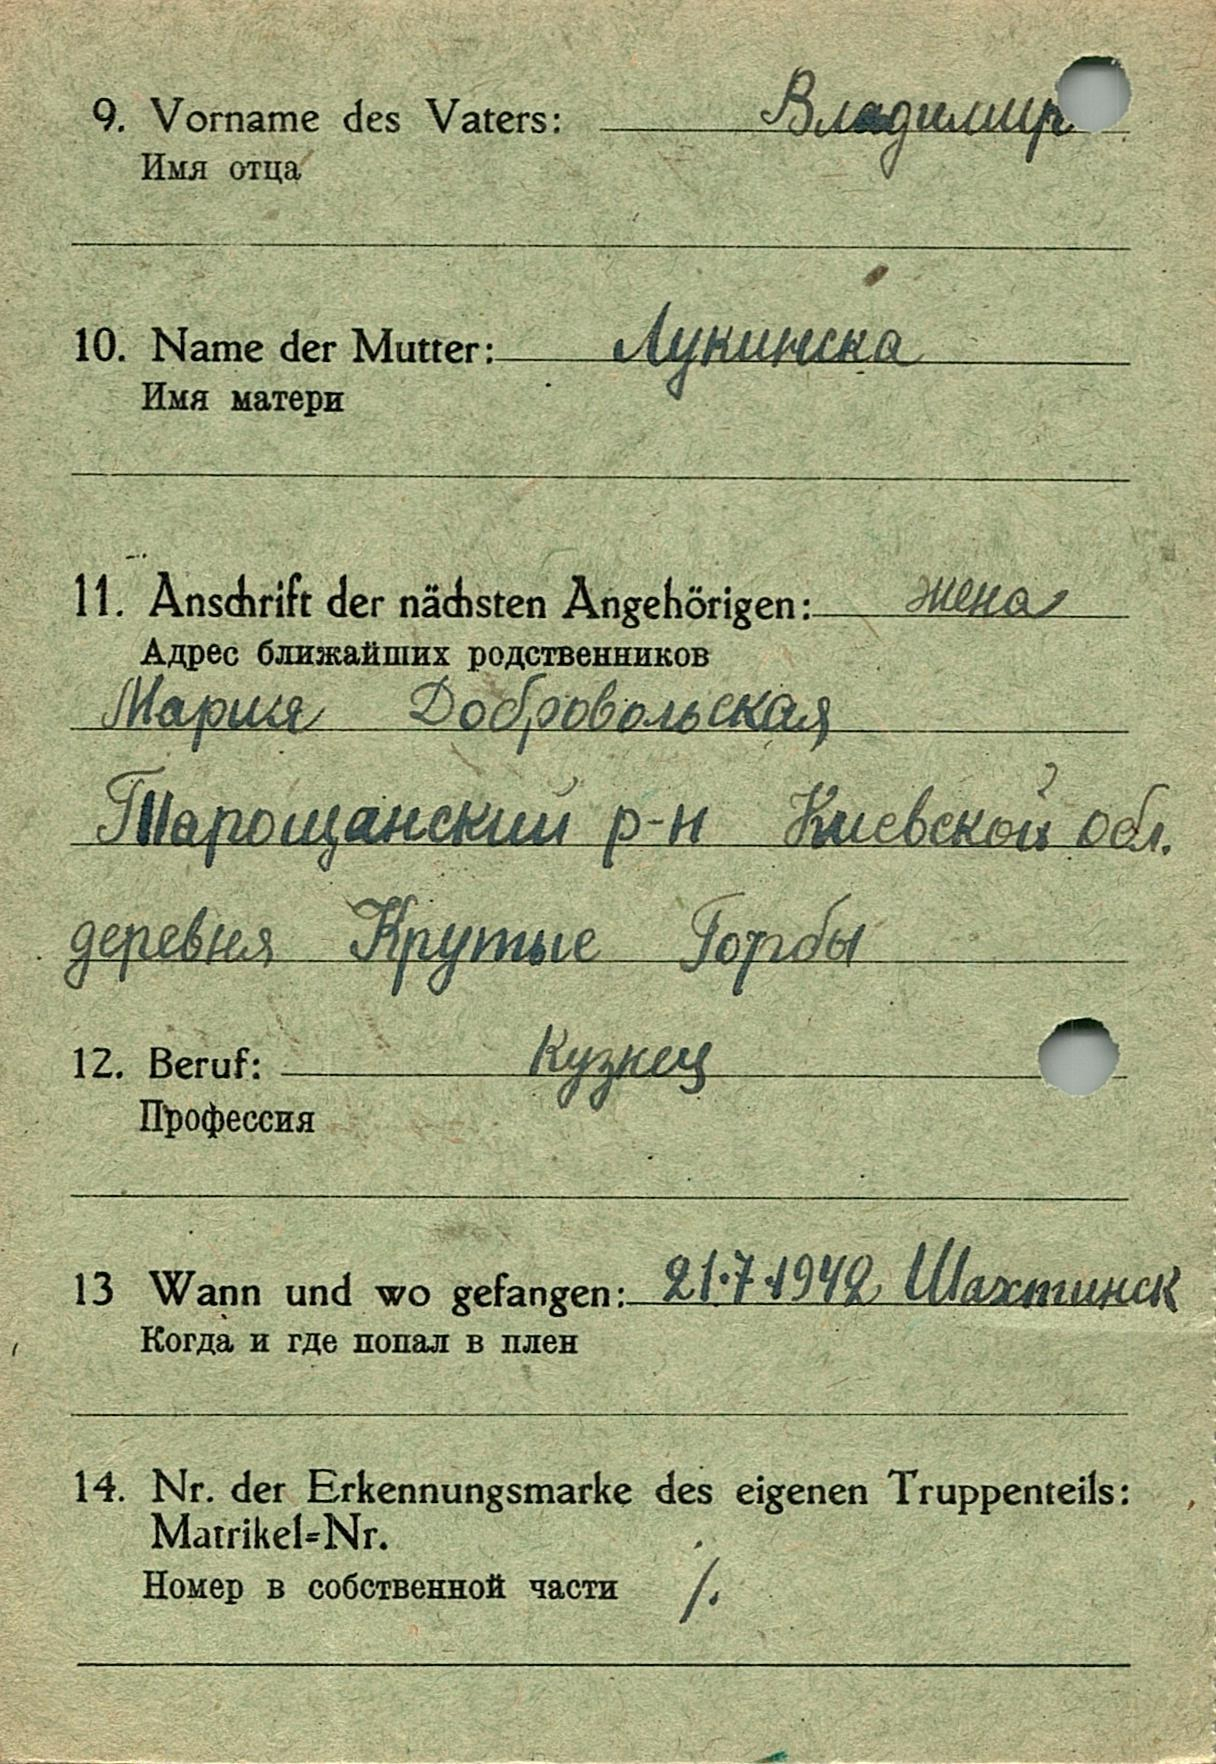 9. Vorname des Vaters: Владимир
Имя отца
10. Name der Mutter: Лукинска
Имя матери
11. Anschrift der nächsten Angehörigen: жена
Адрес ближайших родственников
Мария Добровольская
Тарощанский р-н Киевской обл.
деревня Крутые Горбы
12. Beruf: Кузнец
Профессия
13 Wann und wo gefangen: 21.7.1942 Шахтинск
Когда и где попал в плен
14. Nr. der Erkennungsmarke des eigenen Truppenteils:
Matrikel=Nr.
Номер в собственной части /.